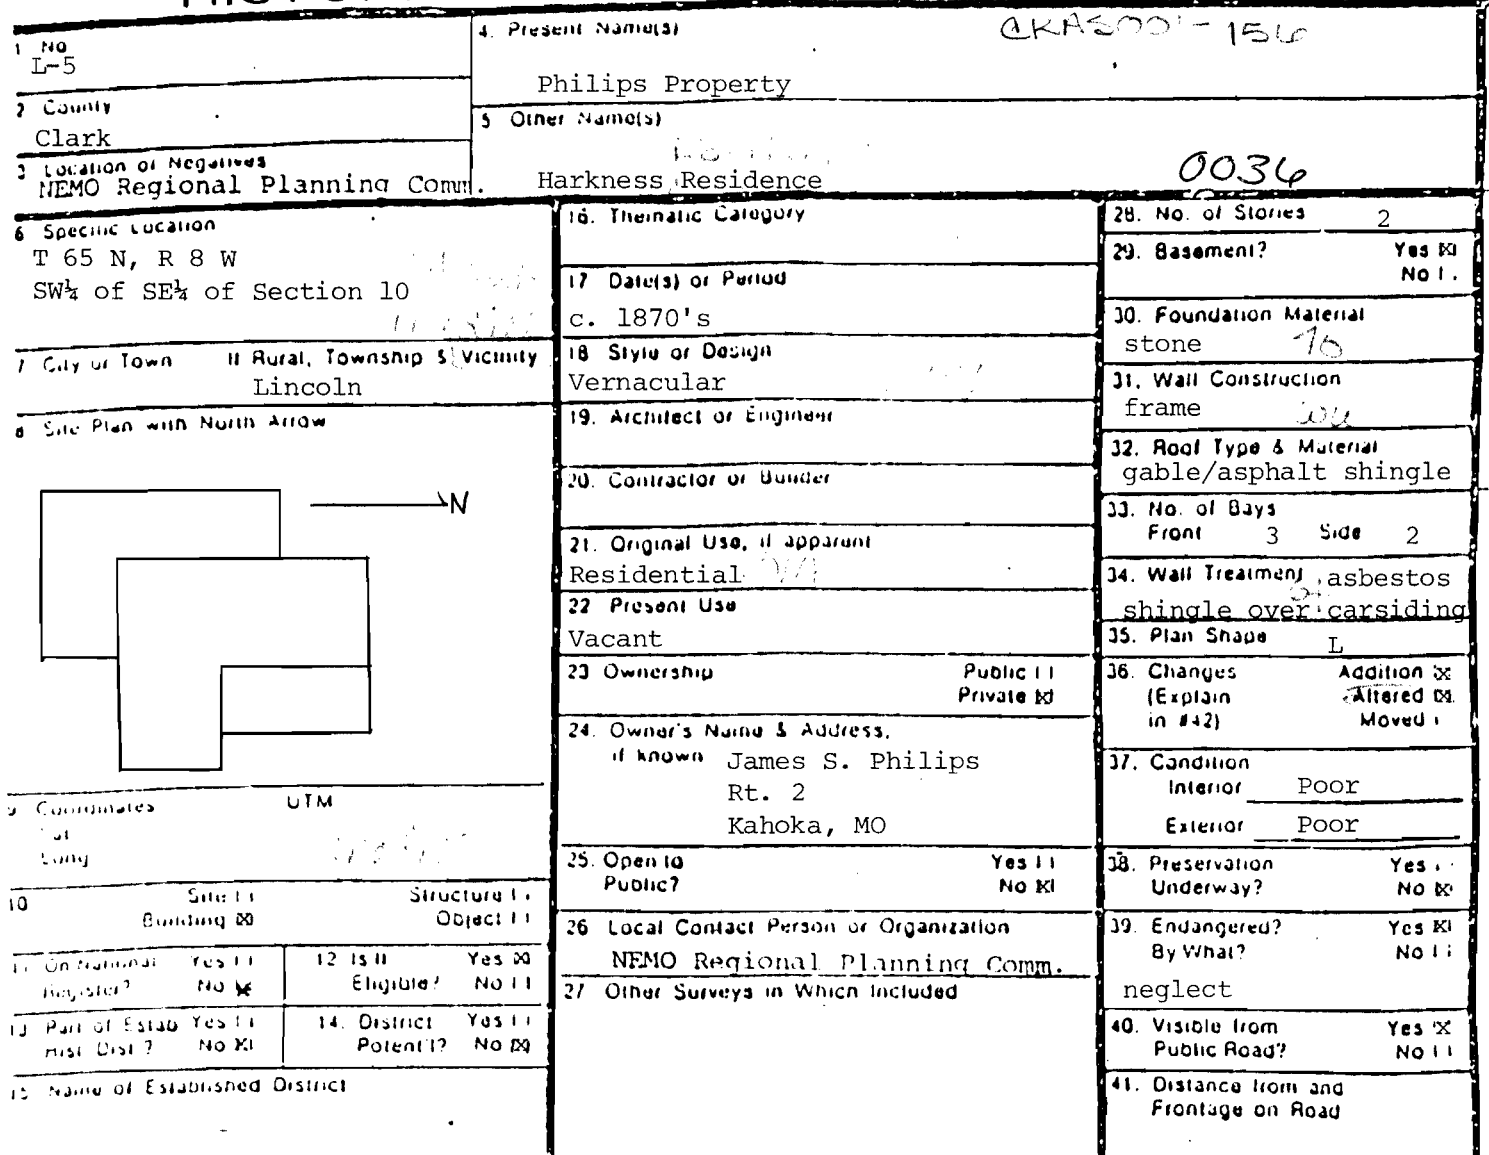 1 No
L-5
2 County
Clark
3 Location of Negatives
NEMO Regional Planning Comm.
4. Present Name(s)
Philips Property
5 Other Name(s)
Harkness Residence
0036
6 Specific Location
T 65 N, R 8 W
SW¼ of SE¼ of Section 10
7 City or Town If Rural, Township & Vicinity
Lincoln
8 Site Plan with North Arrow
N
9 Coordinates UTM
Lat
Long
10 Site Structure
Building ☒ Object
11 On National Yes
Register? No ☒
12 Is It Yes ☒
Eligible? No
13 Part of Estab Yes
Hist. Dist.? No ☒
14. District Yes
Potent'l? No ☒
15 Name of Established District
16. Thematic Category
17 Date(s) or Period
c. 1870's
18 Style or Design
Vernacular
19. Architect or Engineer
20. Contractor or Builder
21. Original Use, if apparent
Residential
22 Present Use
Vacant
23 Ownership Public
Private ☒
24. Owner's Name & Address,
if known James S. Philips
Rt. 2
Kahoka, MO
25. Open to Yes
Public? No ☒
26 Local Contact Person or Organization
NEMO Regional Planning Comm.
27 Other Surveys in Which Included
28. No. of Stories 2
29. Basement? Yes ☒
No
30. Foundation Material
stone 40
31. Wall Construction
frame
32. Roof Type & Material
gable/asphalt shingle
33. No. of Bays
Front 3 Side 2
34. Wall Treatment asbestos
shingle over carsiding
35. Plan Shape L
36. Changes Addition ☒
(Explain Altered ☒
in #42) Moved
37. Condition
Interior Poor
Exterior Poor
38. Preservation Yes
Underway? No ☒
39. Endangered? Yes ☒
By What? No
neglect
40. Visible from Yes ☒
Public Road? No
41. Distance from and
Frontage on Road